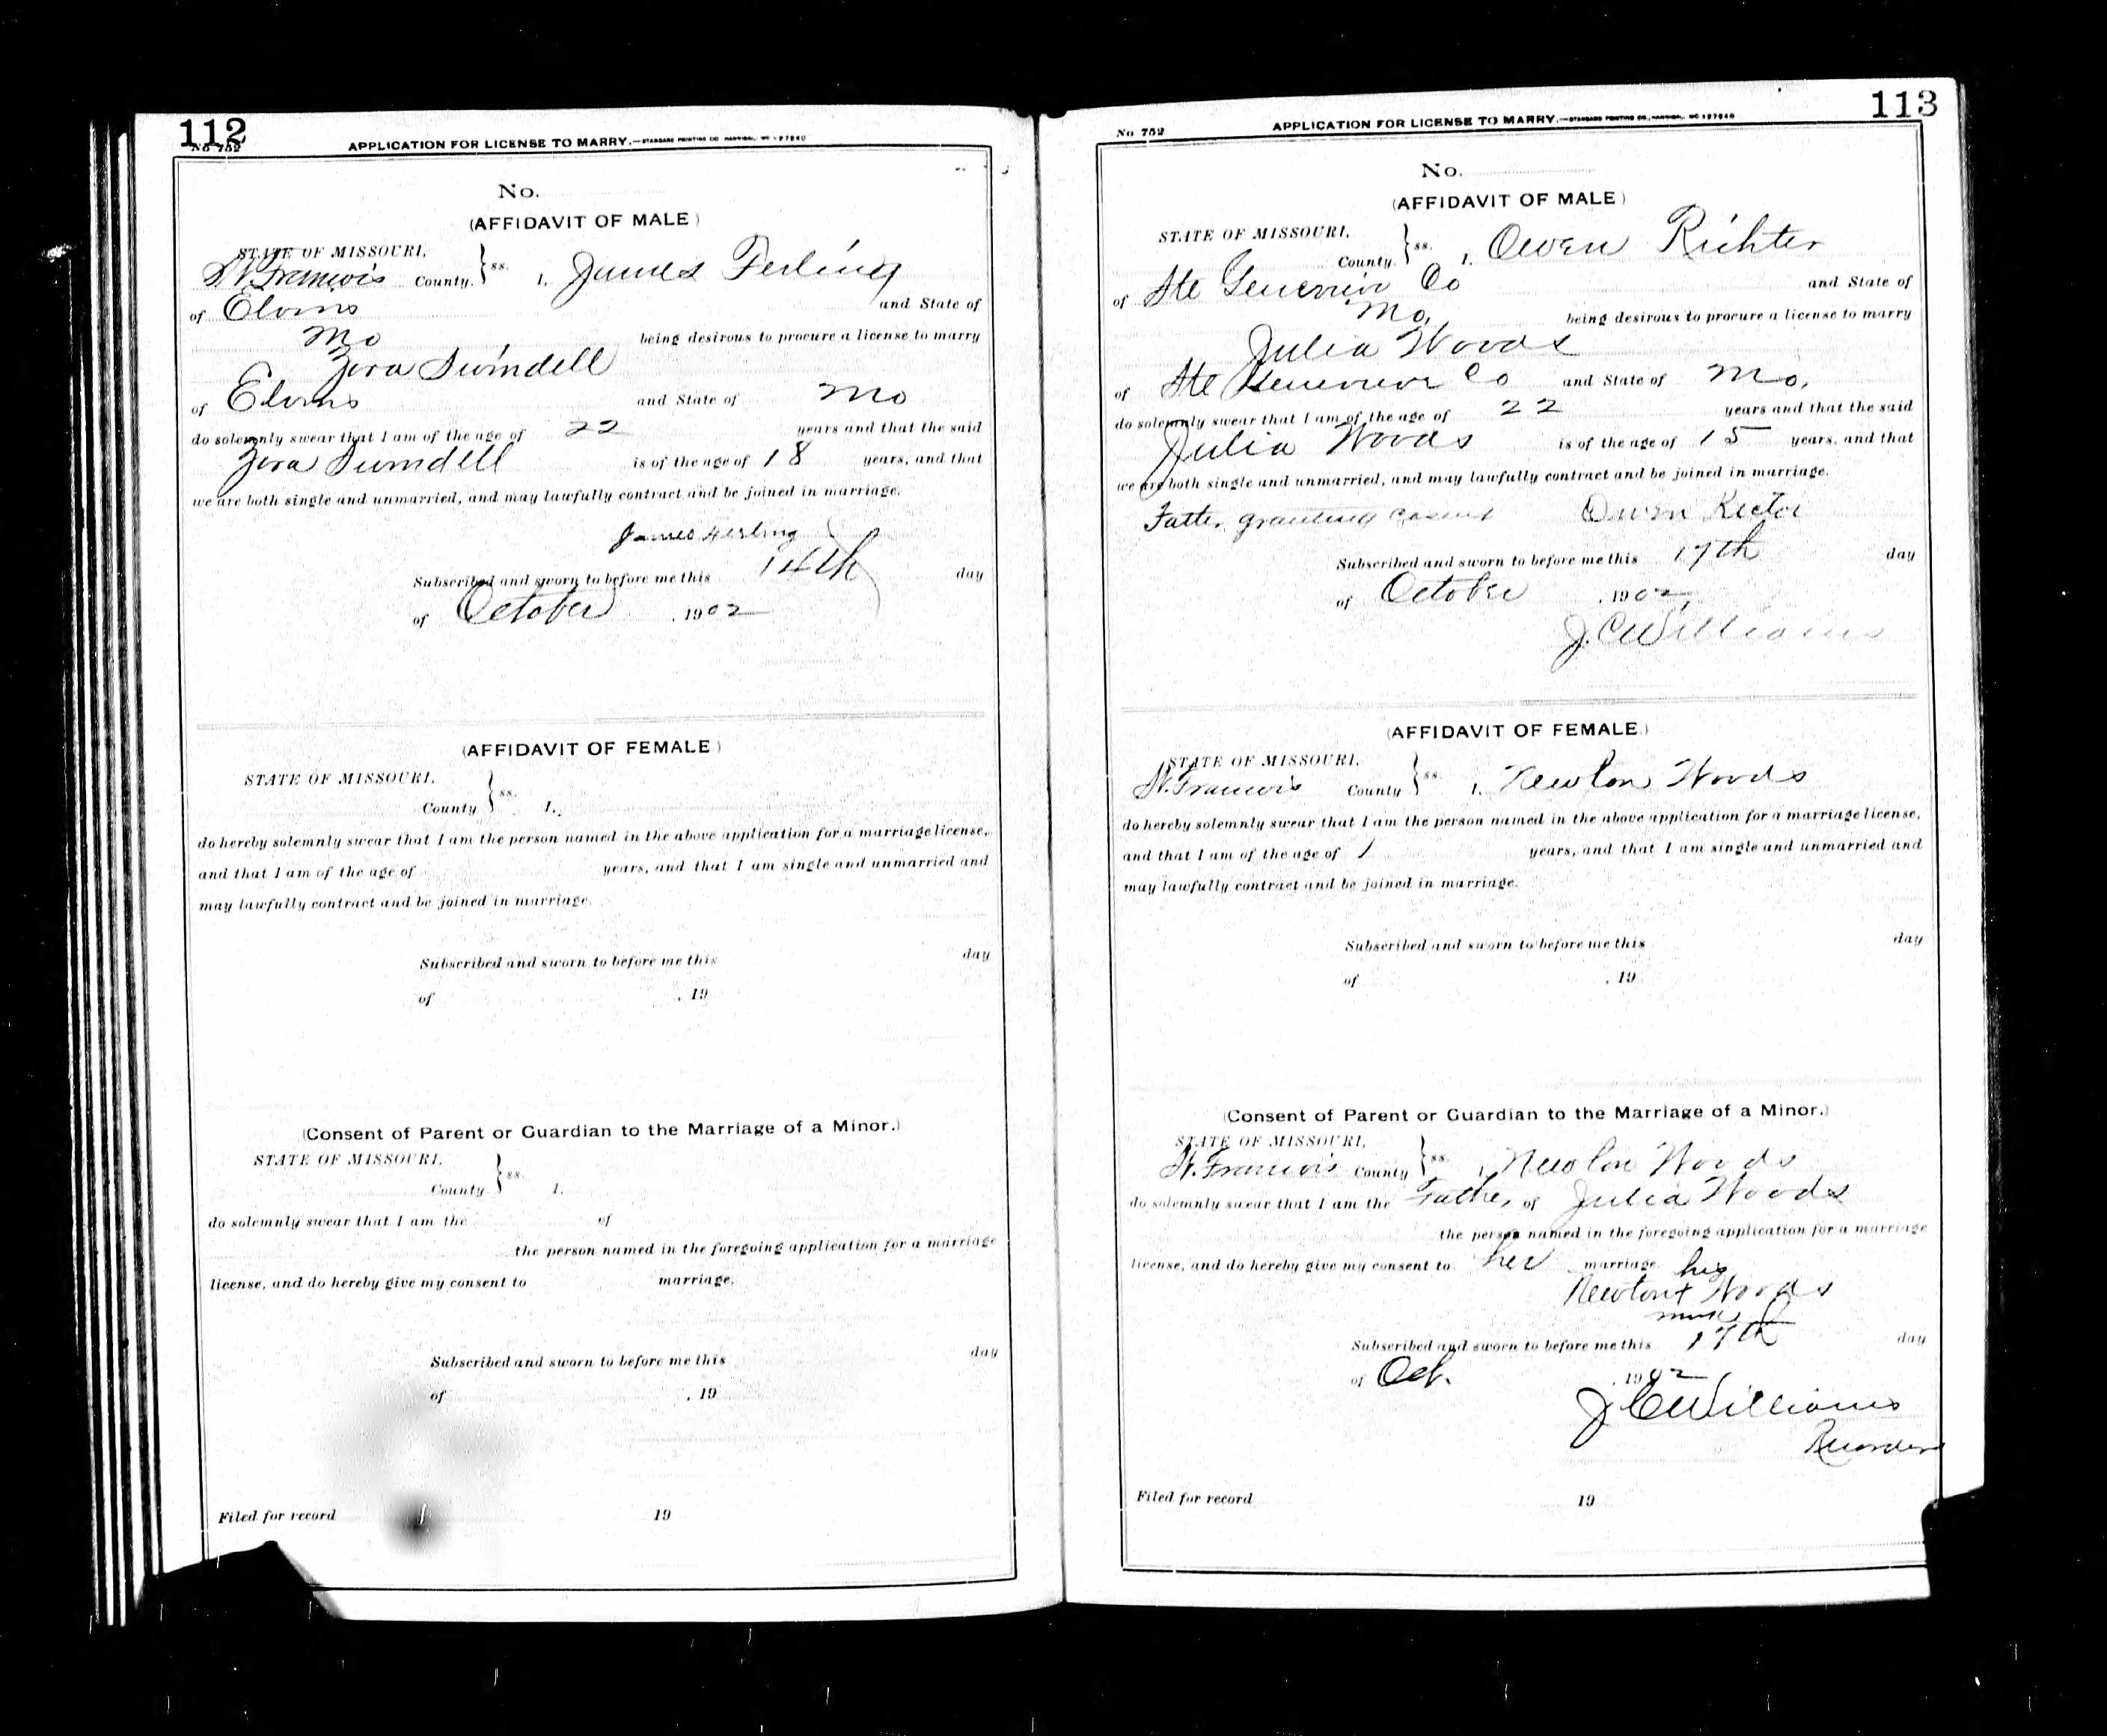 112
No 752
APPLICATION FOR LICENSE TO MARRY.—STANDARD PRINTING CO. HANNIBAL, MO
No.
(AFFIDAVIT OF MALE)
STATE OF MISSOURI,
St. Francois County. } ss. I, James Ferling
of Elvins and State of
Mo being desirous to procure a license to marry
Zora Swindell
of Elvins and State of Mo
do solemnly swear that I am of the age of 22 years and that the said
Zora Swindell is of the age of 18 years, and that
we are both single and unmarried, and may lawfully contract and be joined in marriage.
James Herling
Subscribed and sworn to before me this 14th day
of October , 1902
(AFFIDAVIT OF FEMALE)
STATE OF MISSOURI,
County } ss. I,
do hereby solemnly swear that I am the person named in the above application for a marriage license,
and that I am of the age of years, and that I am single and unmarried and
may lawfully contract and be joined in marriage.
Subscribed and sworn to before me this day
of , 19
(Consent of Parent or Guardian to the Marriage of a Minor.)
STATE OF MISSOURI,
County } ss. I,
do solemnly swear that I am the of
the person named in the foregoing application for a marriage
license, and do hereby give my consent to marriage.
Subscribed and sworn to before me this day
of , 19
Filed for record 19
113
No 752
APPLICATION FOR LICENSE TO MARRY.—STANDARD PRINTING CO., HANNIBAL, MO
No.
(AFFIDAVIT OF MALE)
STATE OF MISSOURI,
County. } ss. I, Owen Richter
of Ste Genevieve Co and State of
Mo, being desirous to procure a license to marry
Julia Woods
of Ste Genevieve Co and State of Mo,
do solemnly swear that I am of the age of 22 years and that the said
Julia Woods is of the age of 15 years, and that
we are both single and unmarried, and may lawfully contract and be joined in marriage.
Father granting consent Owen Rector
Subscribed and sworn to before me this 17th day
of October , 1902
J. C Williams
(AFFIDAVIT OF FEMALE)
STATE OF MISSOURI,
St. Francois County } ss. I, Newton Woods
do hereby solemnly swear that I am the person named in the above application for a marriage license,
and that I am of the age of 1 years, and that I am single and unmarried and
may lawfully contract and be joined in marriage.
Subscribed and sworn to before me this day
of , 19
(Consent of Parent or Guardian to the Marriage of a Minor.)
STATE OF MISSOURI,
St. Francois County } ss. I, Newton Woods
do solemnly swear that I am the Father of Julia Woods
the person named in the foregoing application for a marriage
license, and do hereby give my consent to her marriage. his
Newton + Woods
mark
Subscribed and sworn to before me this 17th day
of Oct. , 1902
J C Williams
Recorder
Filed for record 19